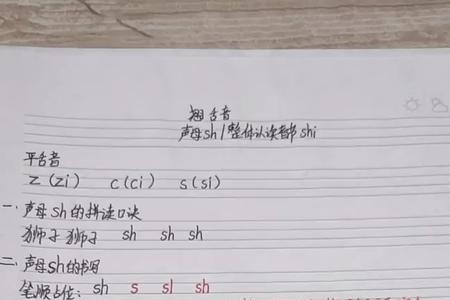 翘舌音
声母sh/整体认读音节shi
平舌音
z (zi) c (ci) s (si)
一、声母sh的拼读口诀
狮子狮子 sh sh sh
二、声母sh的书写
笔顺占位: sh s sl sh